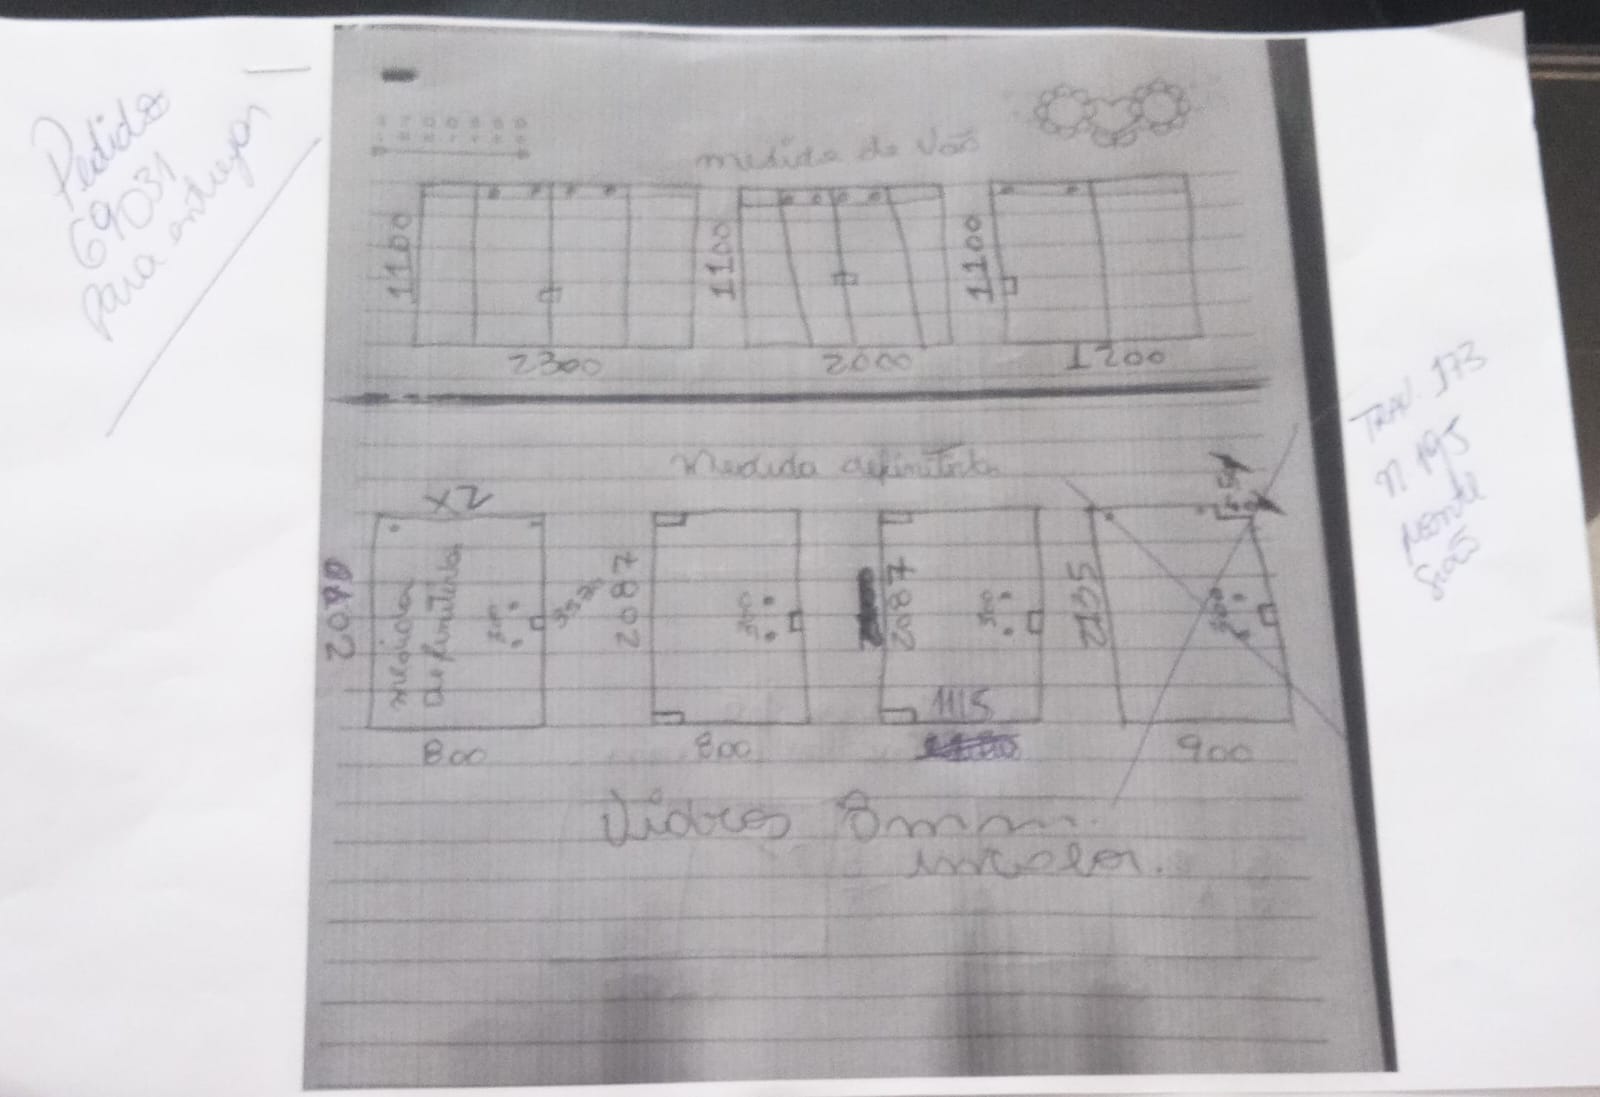 Pedido
69031
para entregar
medida do Vão
1100
2300
1100
2000
1100
1200
Medida definitiva
X2
medida
definitiva
800
2087
800
2087
1115
2135
900
Vidros 8mm.
incolor.
TRAV. 173
n 195
Monte
Sião